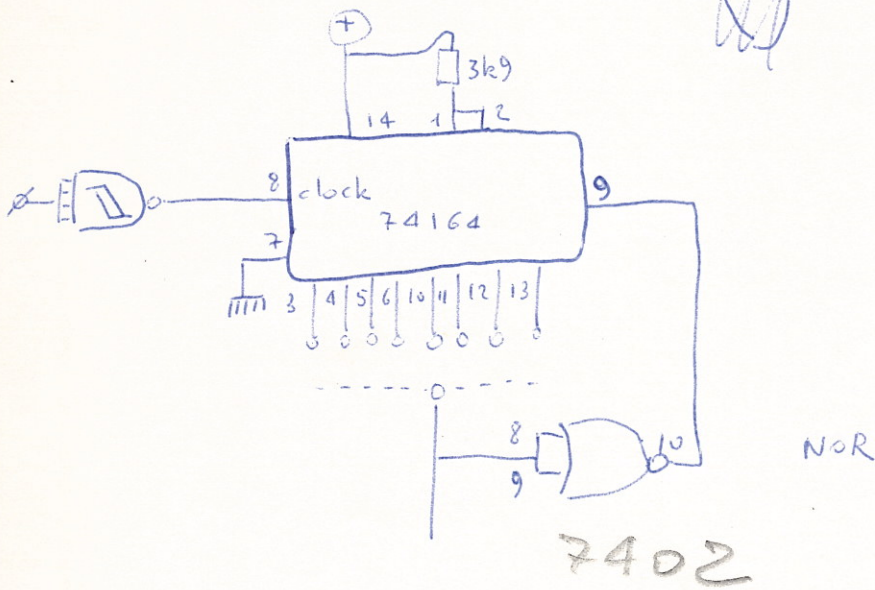 +
3k9
14 1 2
8 clock 9
74164
7
3 4 5 6 10 11 12 13
8
10
NOR
9
7402